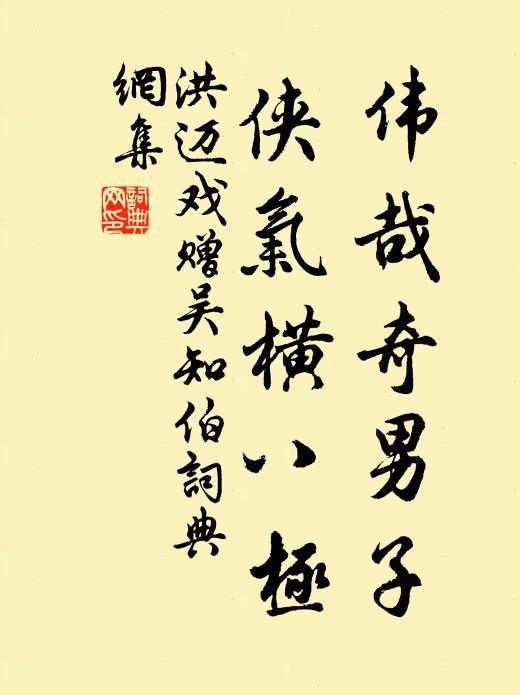 伟哉奇男子
侠氣横八極
洪迈戏赠吴知伯詞典
網集
詞典
网印